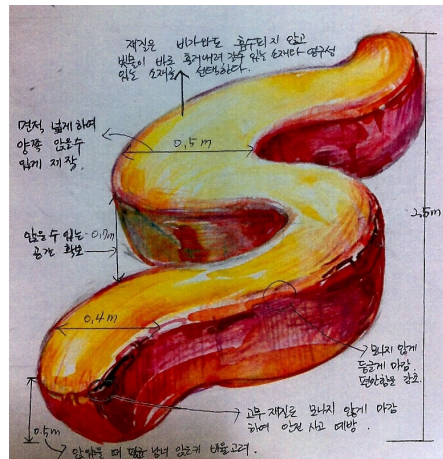 재질은 비가와도 흡수되지 않고
빗물이 바로 흘러내려 갈수 있는 소재와 영구성
있는 소재로 선택한다.
면적, 넓게하여
양쪽 앉을수
있게 제작.
0.5m
2.5m
앉을수 있는
공간 확보
0.7m
0.4m
모나지 않게
둥글게 마감.
편안함을 강조.
고무 재질로 모나지 않게 마감
하여 안전 사고 예방.
0.5m
앉았을 때 평균 남녀 앉은키 비율고려.